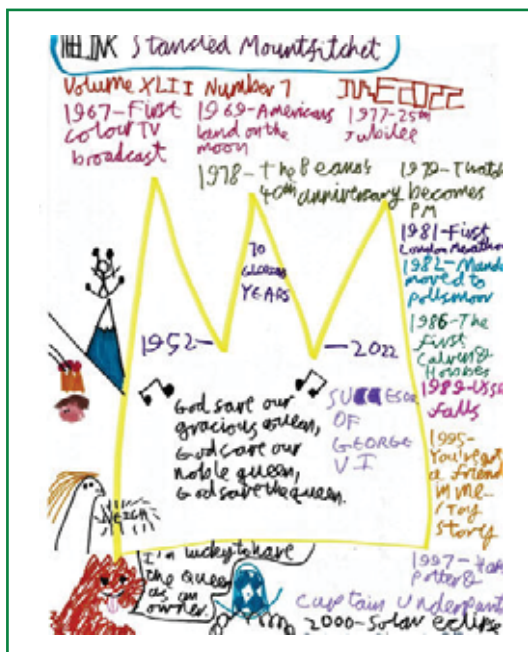 THE LINK Stansted Mountfitchet
Volume XLII Number 7 JUNE 2022
1967-First
colour TV
broadcast
1969-Americans
land on the
moon
1977-25th
Jubilee
1978-The Beano's
40th anniversary
1979-Thatch
becomes
PM
1981-First
London Marathon
1982-Mande
moved to
pollsmoor
1986-The
first
Calvin &
Hobbes
1989-USSR
falls
1995-
You've got
a friend
in me-
Toy
Story
1997-Har
Potter &
Captain Underpants
2000-Solar eclipse
70
GLORIOUS
YEARS
1952-
-2022
God save our
gracious Queen,
God save our
noble queen,
God save the queen.
SUCCESOR
OF
GEORGE
VI
NEIGH
I'm lucky to have
the Queen
as an
owner.